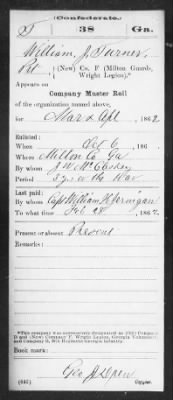 Confederate.
T 38 Ga.
William J. Turner,
Pvt (New) Co. F (Milton Guards,
Wright Legion).*
Appears on
Company Muster Roll
of the organization named above,
for Mar & Apl, 1862
Enlisted:
When Oct 6, 186
Where Milton Co Ga
By whom J. W. McCleskey
Period 3 yrs or the War
Last paid:
By whom Capt William H Jernigan
To what time Feb 28, 1862
Present or absent Present
Remarks:
Book mark:
(642) Copyist.